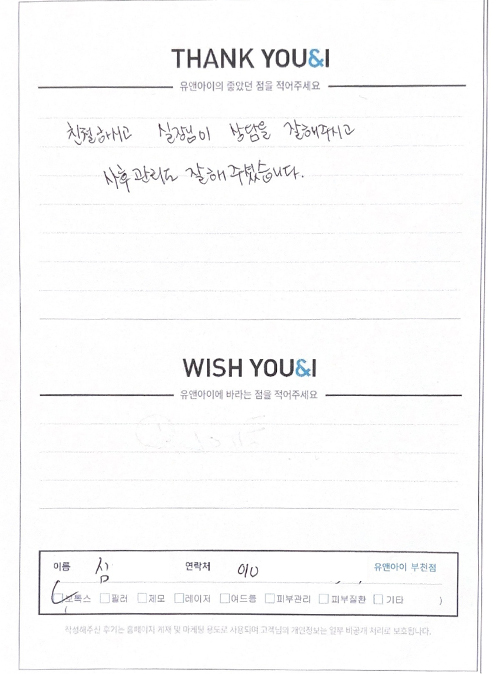 THANK YOU&I
유앤아이의 좋았던 점을 적어주세요
친절하시고 실장님이 상담을 잘해주시고
사후관리도 잘해주셨습니다.
WISH YOU&I
유앤아이에 바라는 점을 적어주세요
이름 심 연락처 010 유앤아이 부천점
보톡스 필러 제모 레이저 여드름 피부관리 피부질환 기타 )
작성해주신 후기는 홈페이지 게재 및 마케팅 용도로 사용되며 고객님의 개인정보는 일부 비공개 처리로 보호됩니다.